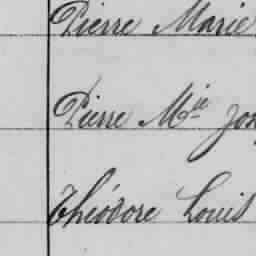 Pierre Marie
Pierre Mie
Théodore Louis